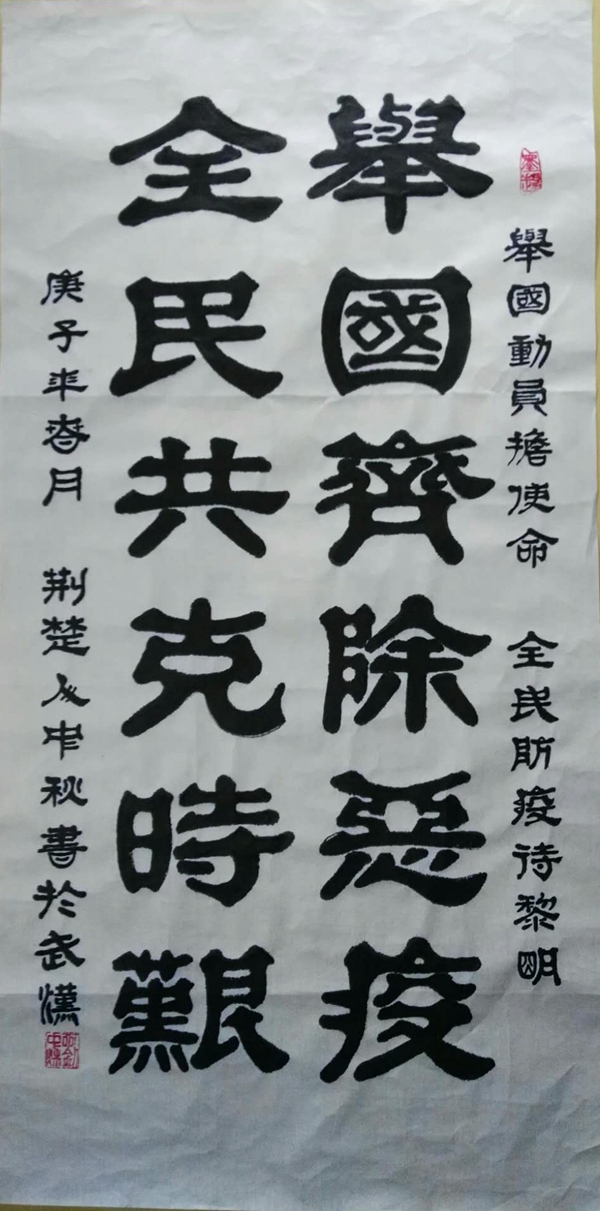 舉國動員擔使命 全民防疫待黎明
舉國齊除惡疫
全民共克時艱
庚子年春月 荆楚人中秋書於武漢